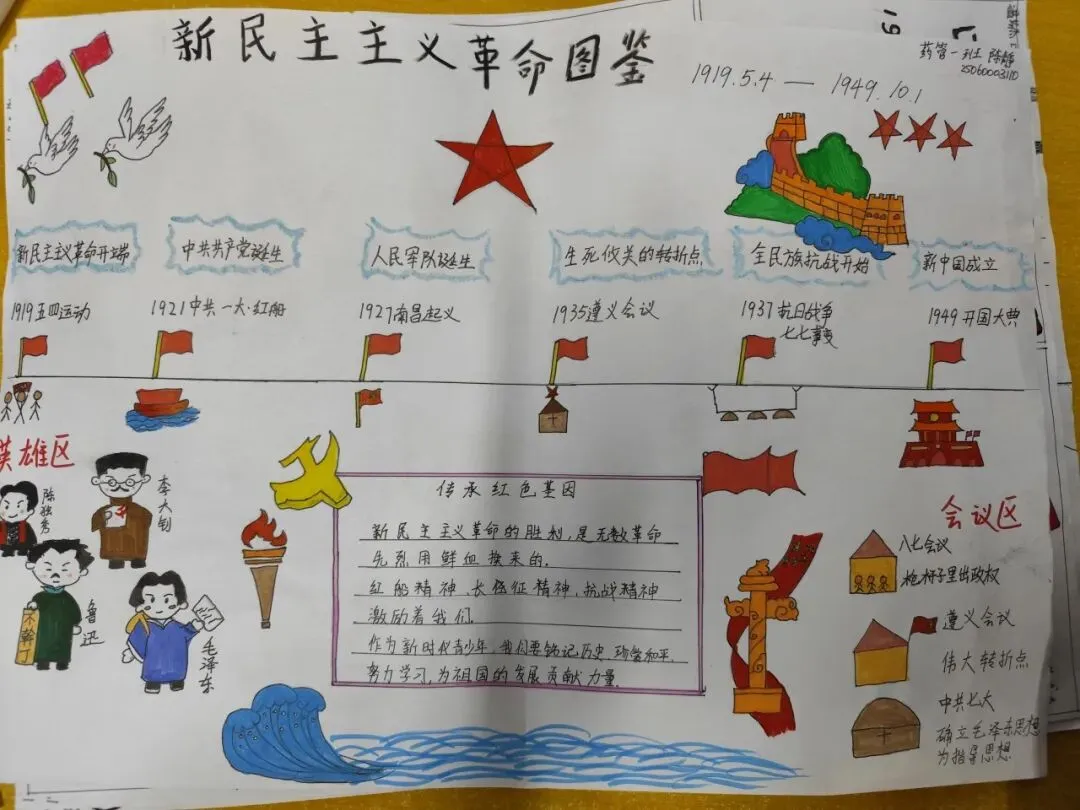 新民主主义革命图鉴
药管一班 陈静
25060003110
1919.5.4 — 1949.10.1
新民主主义革命开端
中共共产党诞生
人民军队诞生
生死攸关的转折点
全民族抗战开始
新中国成立
1919五四运动
1921中共一大·红船
1927南昌起义
1935遵义会议
1937抗日战争
七七事变
1949开国大典
英雄区
陈独秀
李大钊
鲁迅
不幹了
毛泽东
传承红色基因
新民主主义革命的胜利,是无数革命
先烈用鲜血换来的.
红船精神、长征精神、抗战精神
激励着我们.
作为新时代青少年,我们要铭记历史,珍爱和平.
努力学习,为祖国的发展贡献力量.
会议区
八七会议
枪杆子里出政权
遵义会议
伟大转折点
中共七大
确立毛泽东思想
为指导思想